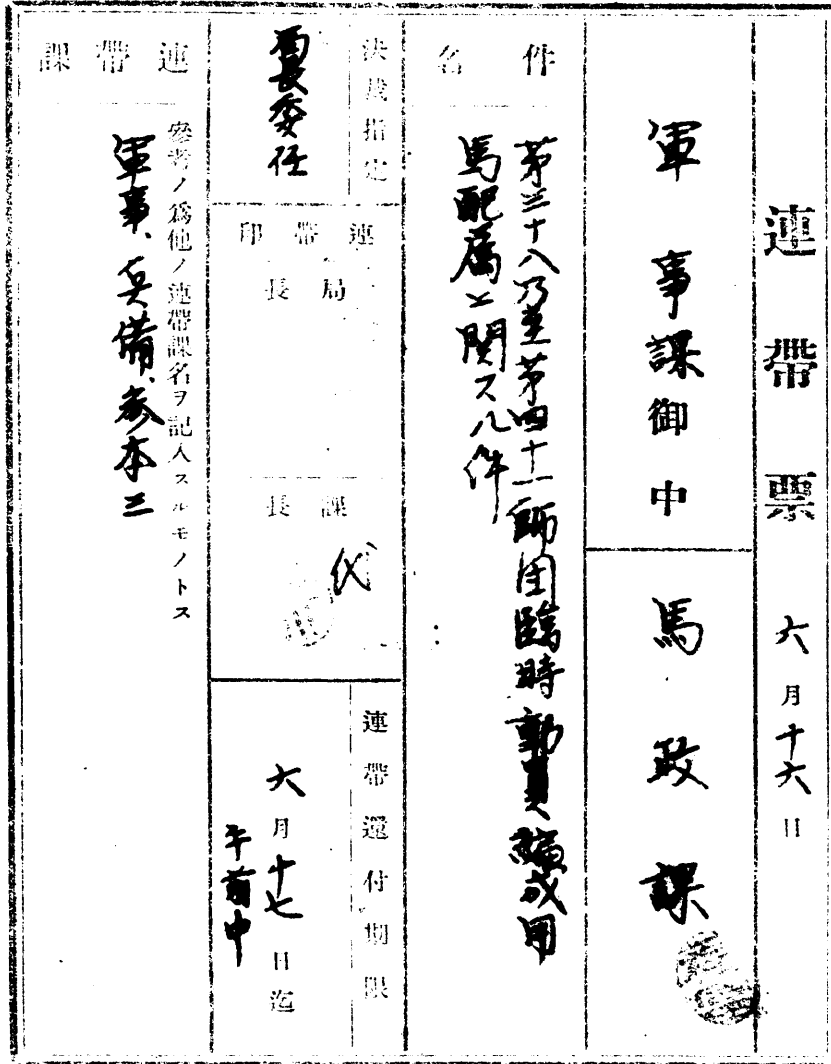 連帶票 六月十六日
軍事課御中
馬政課
件名
第三十八乃至第四十一師団臨時動員編成用
馬配属ニ関スル件
決裁指定
局長委任
連帶印
局長
課長
代
連帶還付期限
六月十七日迄
午前中
連帶課
參考ノ爲他ノ連帶課名ヲ記入スルモノトス
軍事、兵備、参本三